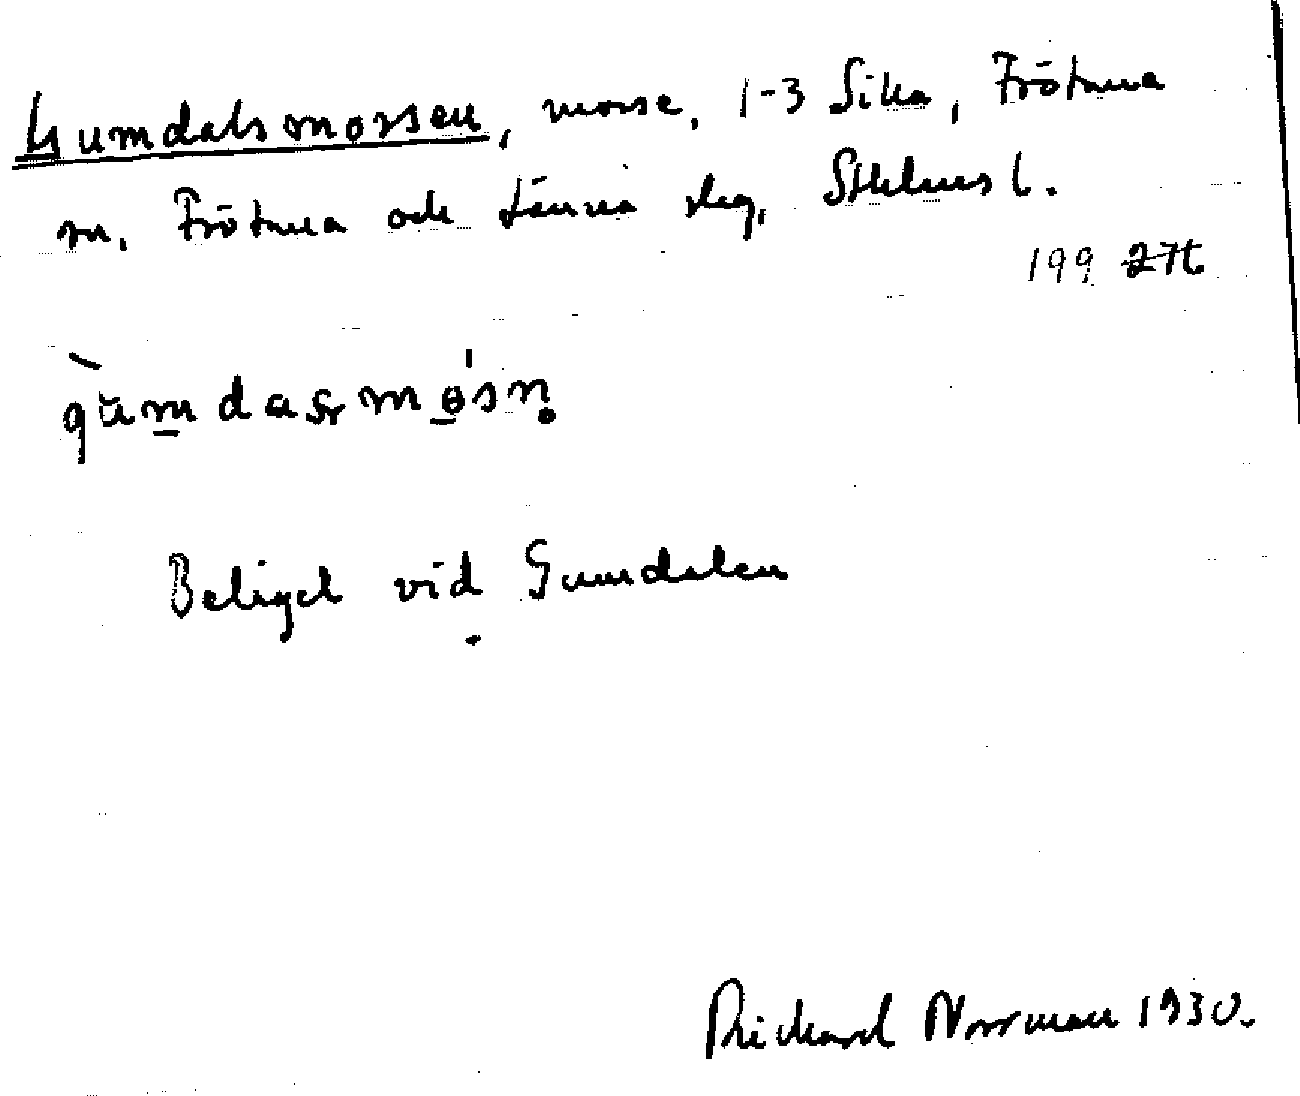 Gumdalsmossen, mosse, 1-3 Sika, Frötuna
sn, Frötuna och Länna skg, Sthlms l.
199 276
gùmdasmøsn
Beläget vid Gumdalen
Rickard Norrman 1930.